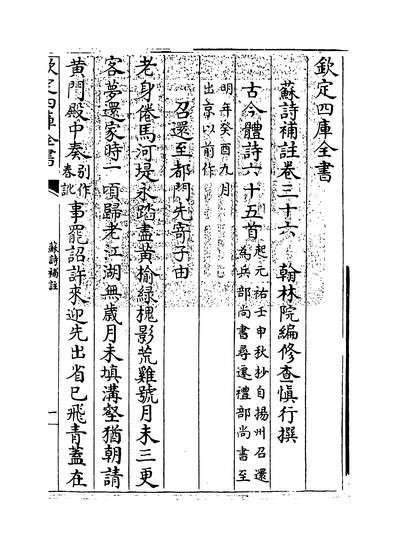 欽定四庫全書
蘇詩補註卷三十六　翰林院編修查慎行撰
古今體詩六十五首起元祐壬申秋抄自揚州召還
為兵部尚書尋遷禮部尚書至
明年癸酉九月
出京以前作
召還至都門先寄子由
老身倦馬河堤永踏盡黄榆緑槐影荒雞號月未三更
客夢還家時一頃歸老江湖無歲月未填溝壑猶朝請
黄門殿中奏别作
春訛事罷詔許來迎先出省已飛青蓋在
欽定四庫全書
蘇詩補註
一